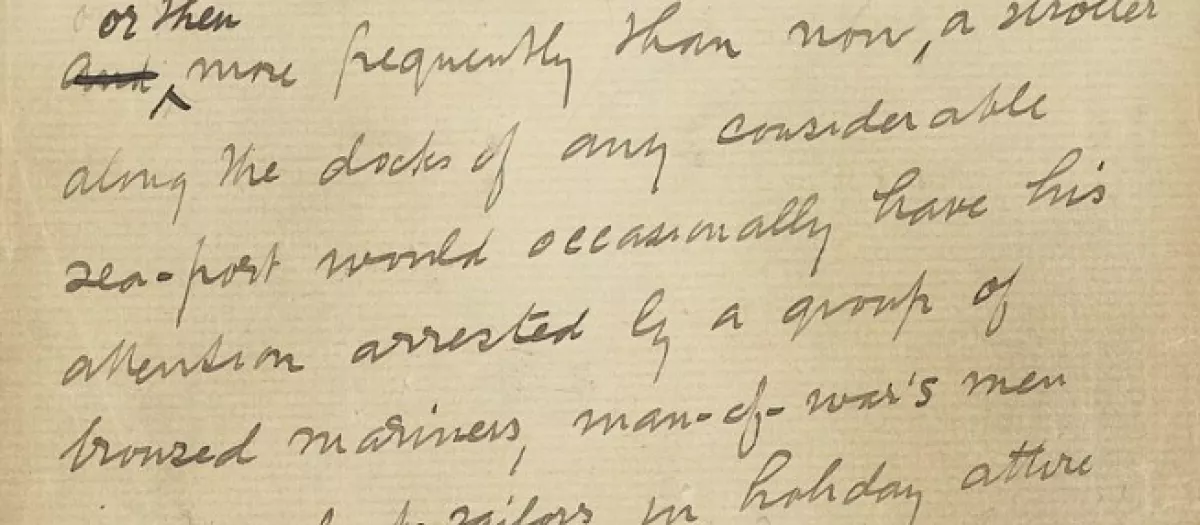 or then
and more frequently than now, a stroller
along the docks of any considerable
sea-port would occasionally have his
attention arrested by a group of
bronzed mariners, man-of-war's men
sailors in holiday attire